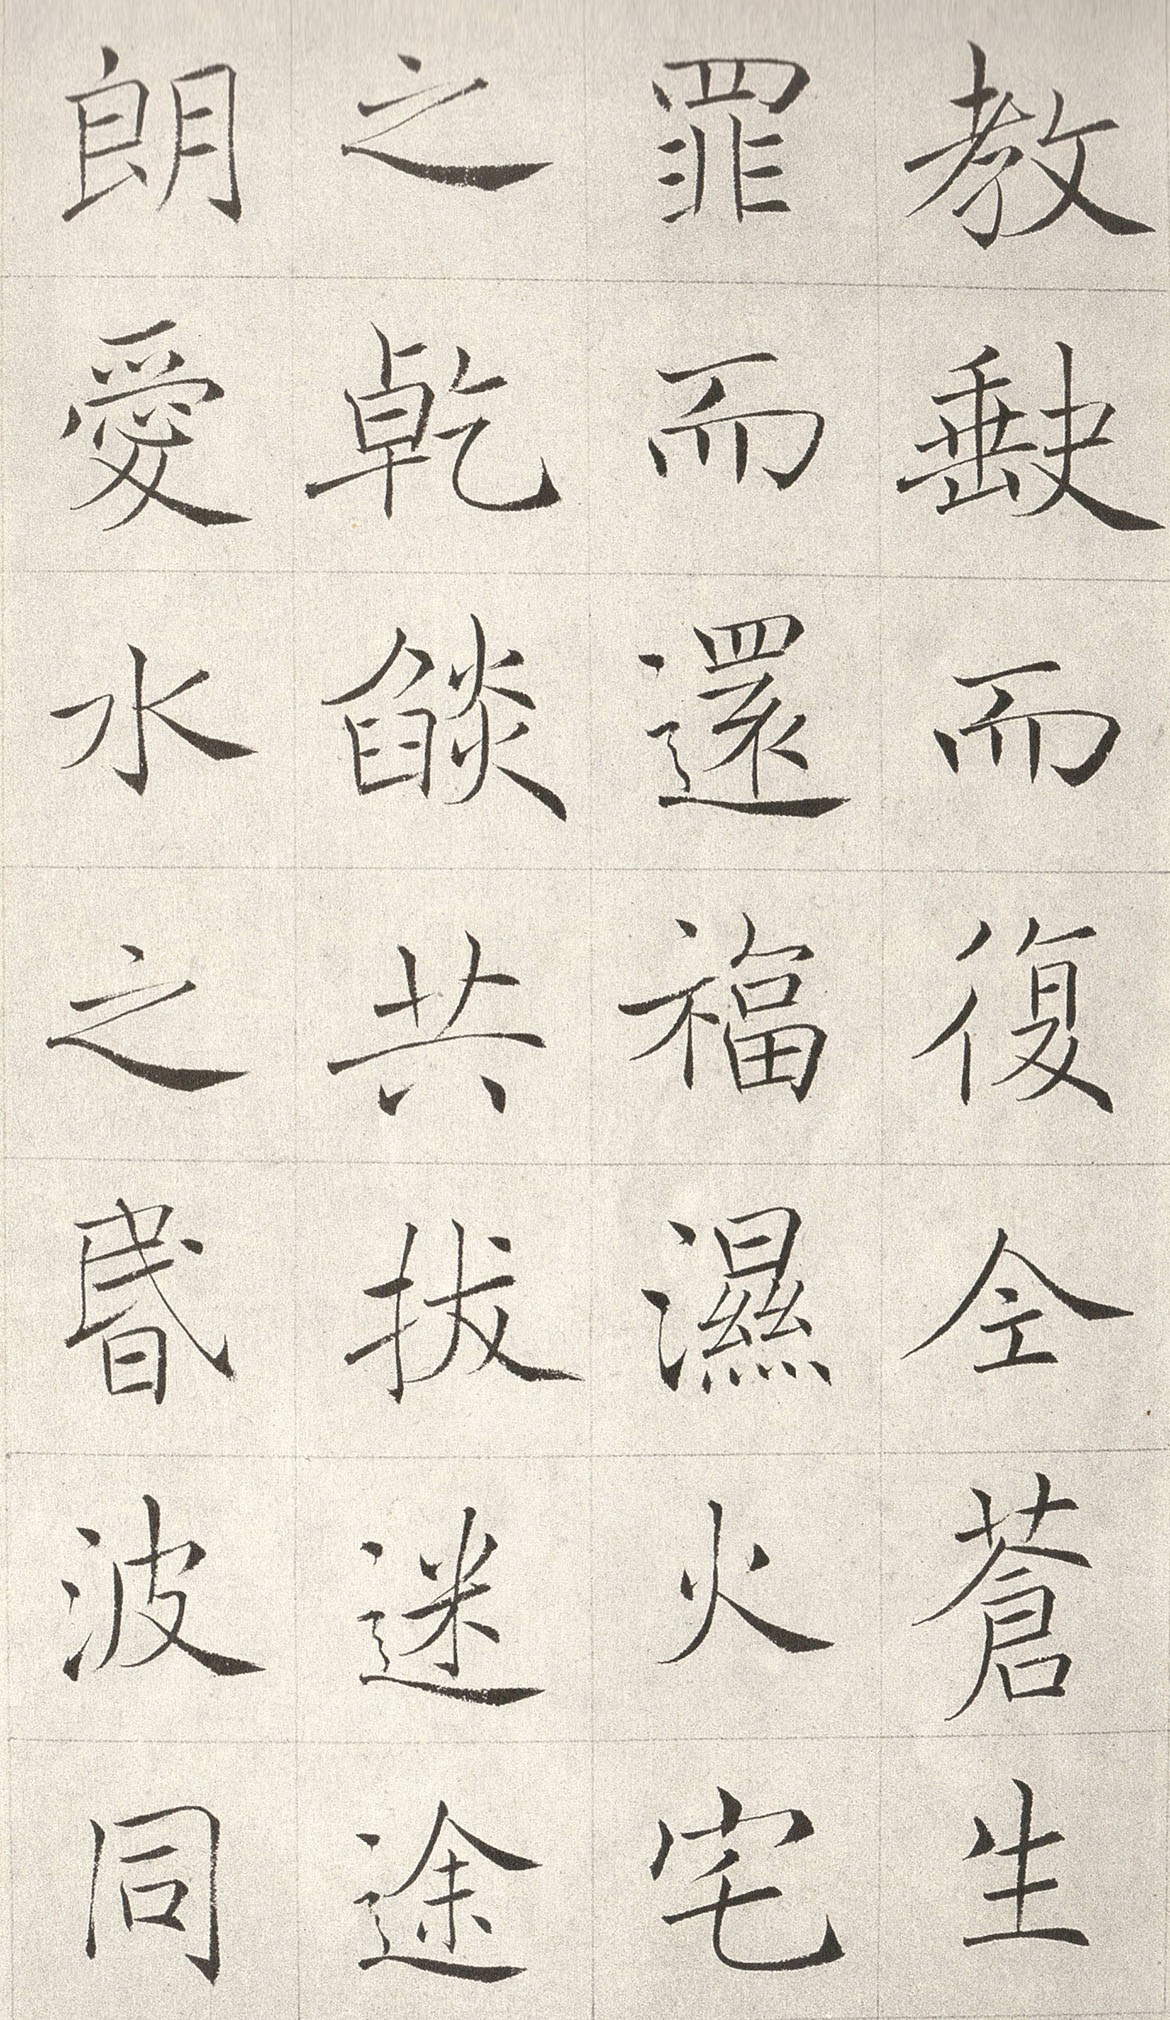 教缺而復仝蒼生
罪而還福濕火宅
之乾燄共拔迷途
朗愛水之昬波同